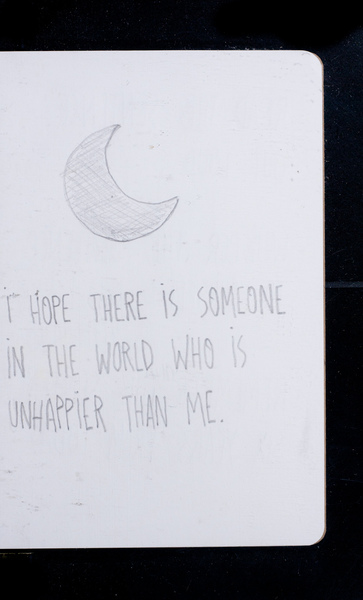 i HOPE THERE iS SOMEONE
iN THE WORLD WHO iS
UNHAPPiER THAN ME.